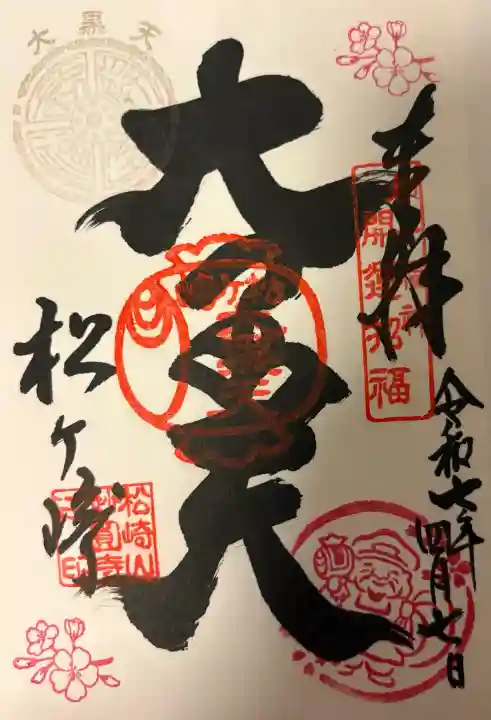 奉拝
開運招福
令和七年
四月七日
大黒天
大黒天
松ヶ崎
松崎山
妙圓寺